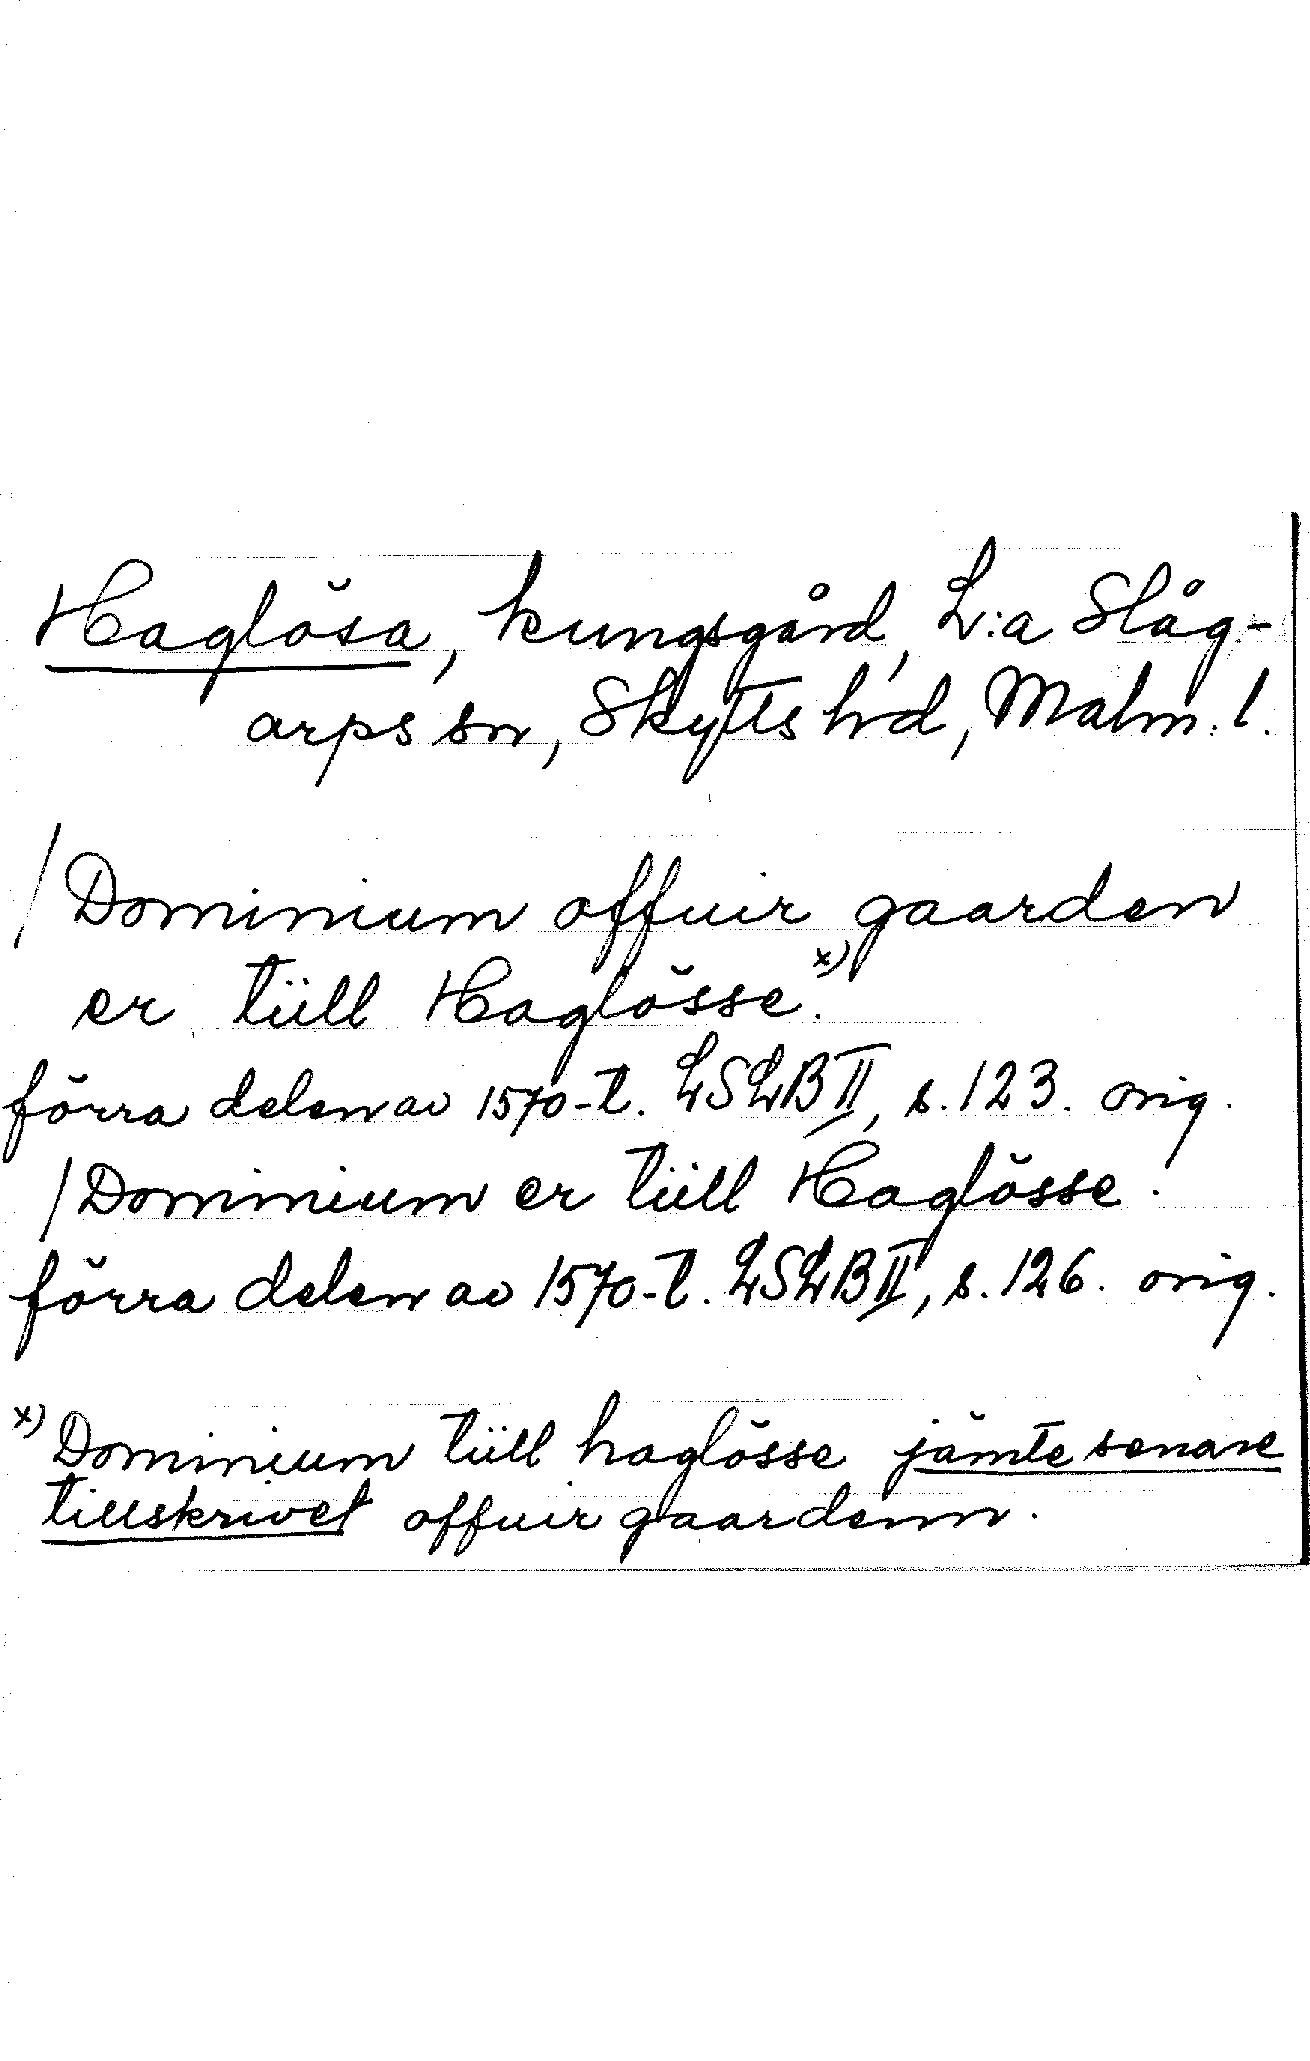 Haglösa, kungsgård, L:a Slåg-
arps sn, Skytts hd, Malm. l.
/Dominium offuir gaarden
er tiill Haglösse.x)
förra delen av 1570-t. LSLB II, s. 123. orig.
/Dominium er tiill Haglösse.
förra delen av 1570-t. LSLB II, s. 126. orig.
x) Dominium tiill haglösse jämte senare
tillskrivet offuir gaardenn.